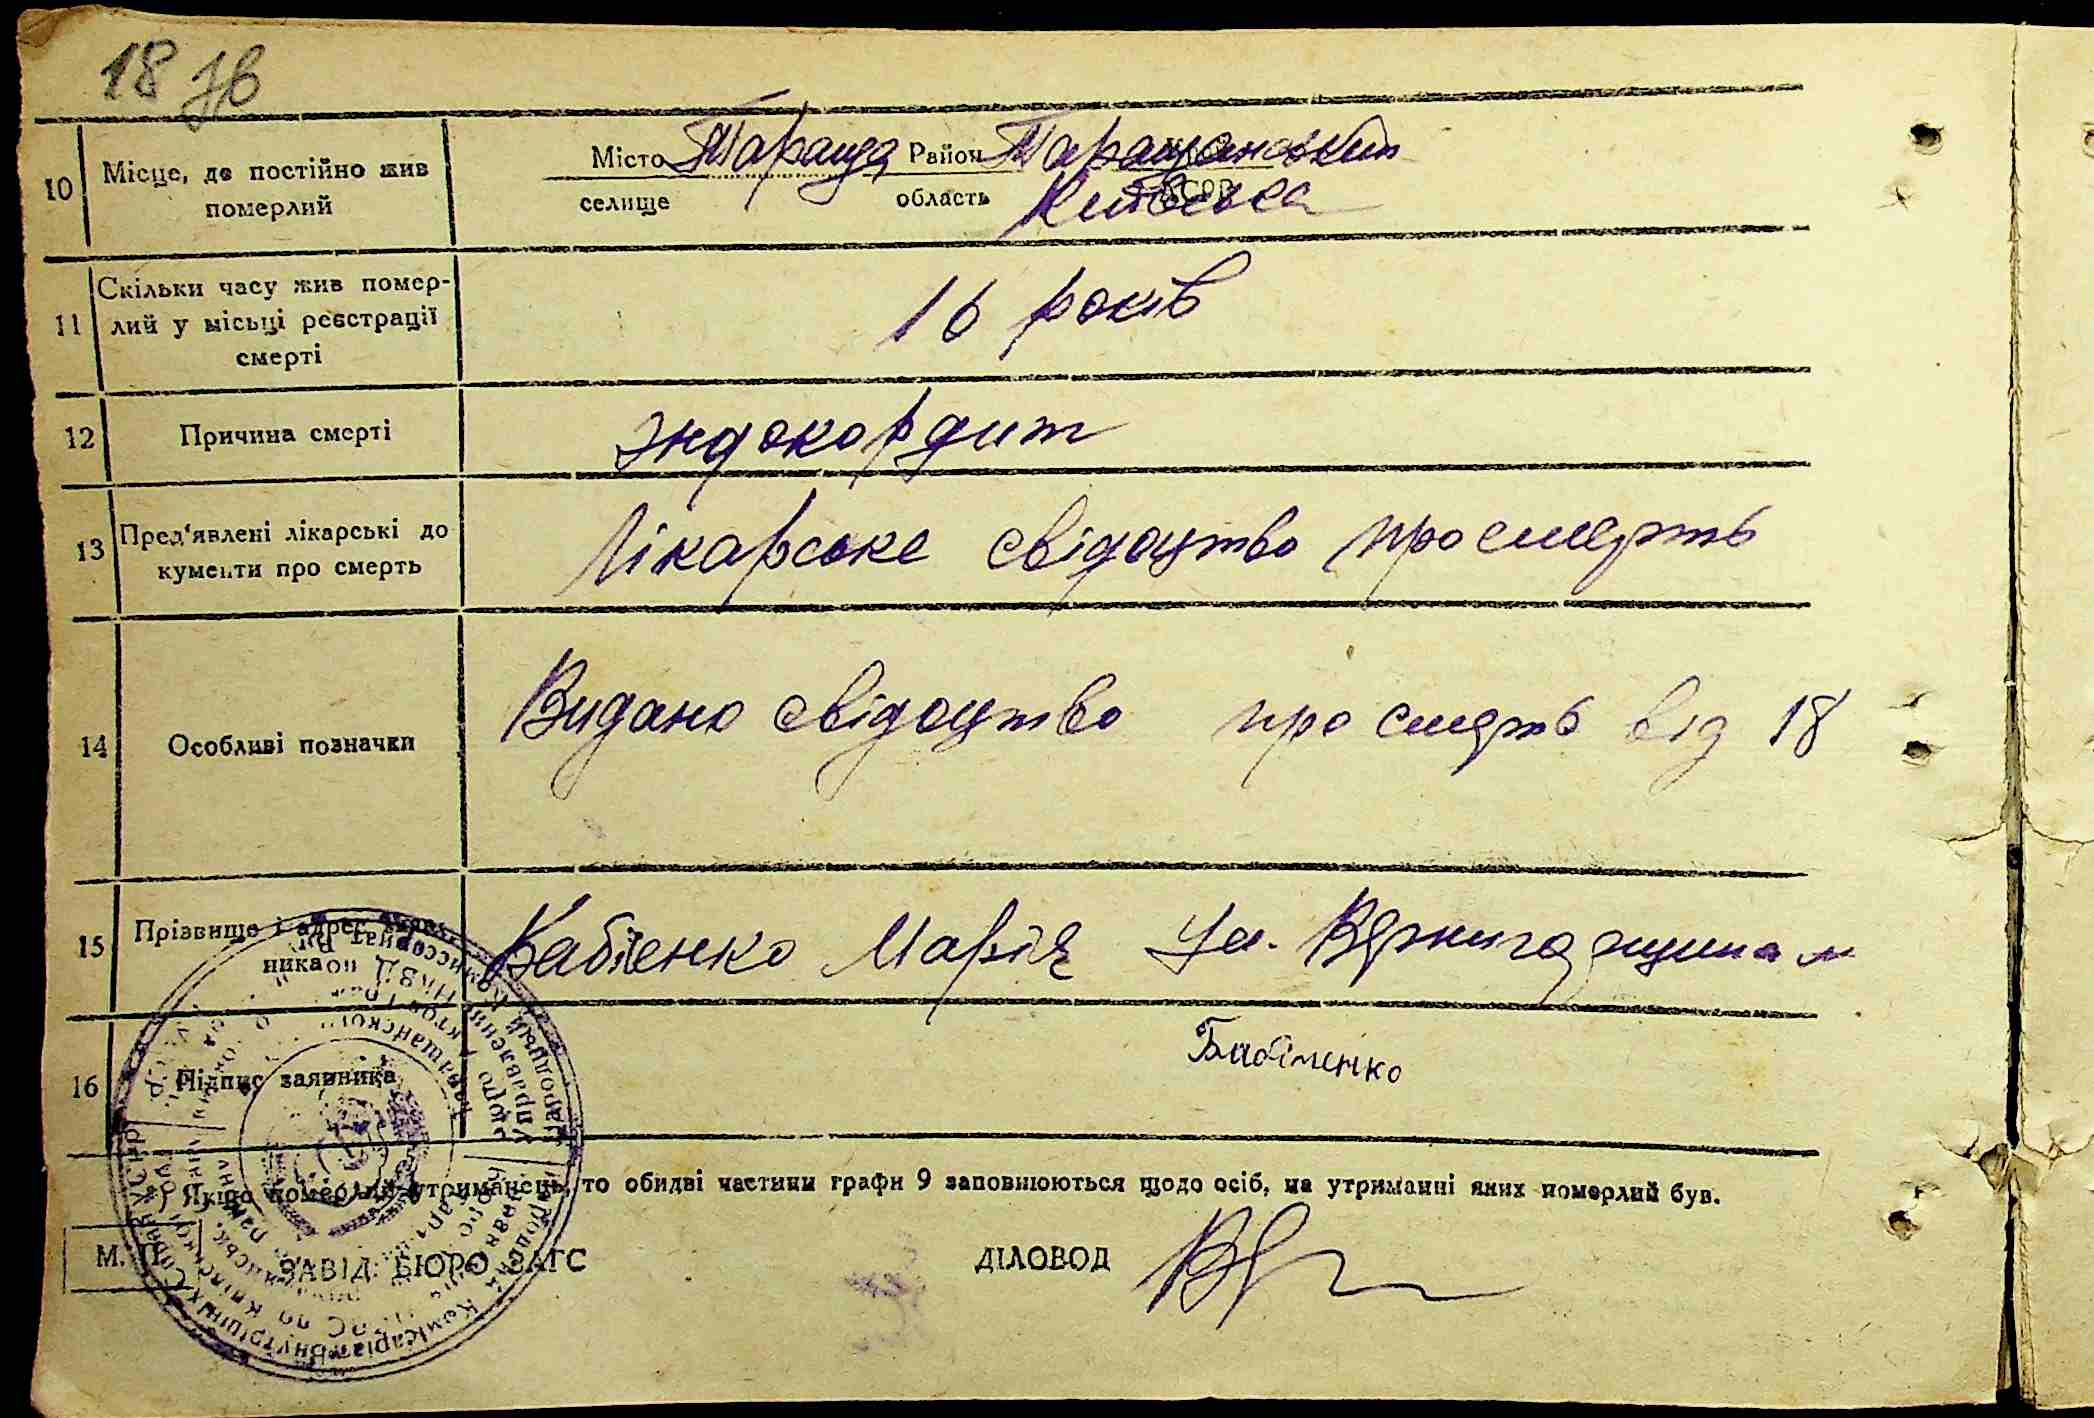 18 зв
10
Місце, де постійно жив
померлий
Місто Тараща Район Таращанський
селище область Київська
11
Скільки часу жив помер-
лий у місьці реєстрації
смерті
16 років
12
Причина смерті
эндокордит
13
Пред'явлені лікарські до
кументи про смерть
Лікарське свідоцтво про смерть
14
Особливі позначки
Видано свідоцтво про смерть від 18
15
Прізвище і адрес
ника
Марія Ул.
16
Підпис заявника
*) Якщо померлий утриманець, то обидві частини графи 9 заповнюються щодо осіб, на утриманні яких померлий був.
М. П.
ЗАВІД. БЮРО ЗАГС
ДІЛОВОД